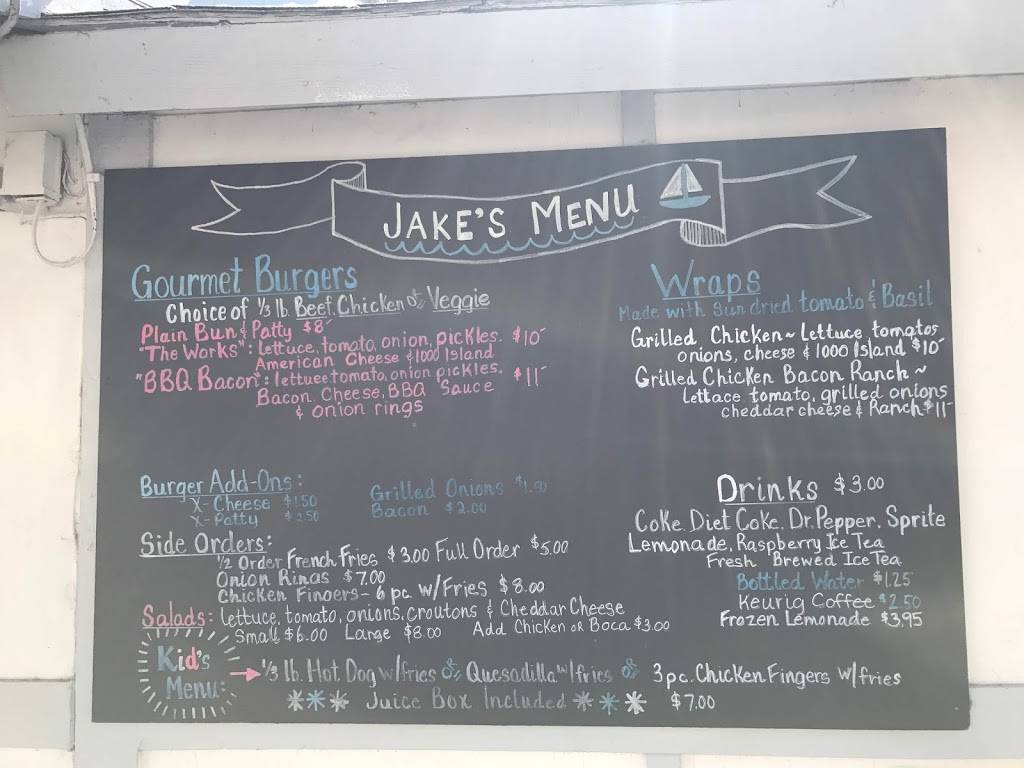 JAKE'S MENU
Gourmet Burgers
Choice of 1/3 lb. Beef, Chicken or Veggie
Plain Bun & Patty $8
"The Works": lettuce, tomato, onion, pickles. $10
American Cheese & 1000 Island
"BBQ Bacon": lettuce tomato, onion pickles. $11
Bacon, Cheese, BBQ Sauce
& onion rings
Burger Add-Ons:
X-Cheese $1.50
X-Patty $2.50
Grilled Onions $1.50
Bacon $2.00
Side Orders:
1/2 Order French Fries $3.00 Full Order $5.00
Onion Rings $7.00
Chicken Fingers - 6 pc. w/Fries $8.00
Salads: lettuce, tomato, onions, croutons & Cheddar Cheese
Small $6.00 Large $8.00 Add Chicken or Boca $3.00
Wraps
Made with Sun dried tomato & Basil
Grilled Chicken ~ Lettuce, tomatos
onions, cheese & 1000 Island $10
Grilled Chicken Bacon Ranch ~
Lettace tomato, grilled onions
cheddar cheese & Ranch $11
Drinks $3.00
Coke, Diet Coke, Dr. Pepper, Sprite
Lemonade, Raspberry Ice Tea
Fresh Brewed Ice Tea
Bottled Water $1.25
Keurig Coffee $2.50
Frozen Lemonade $3.95
Kid's
Menu:
1/3 lb. Hot Dog w/fries or Quesadilla w/fries or 3 pc. Chicken Fingers w/fries
*** Juice Box Included *** $7.00